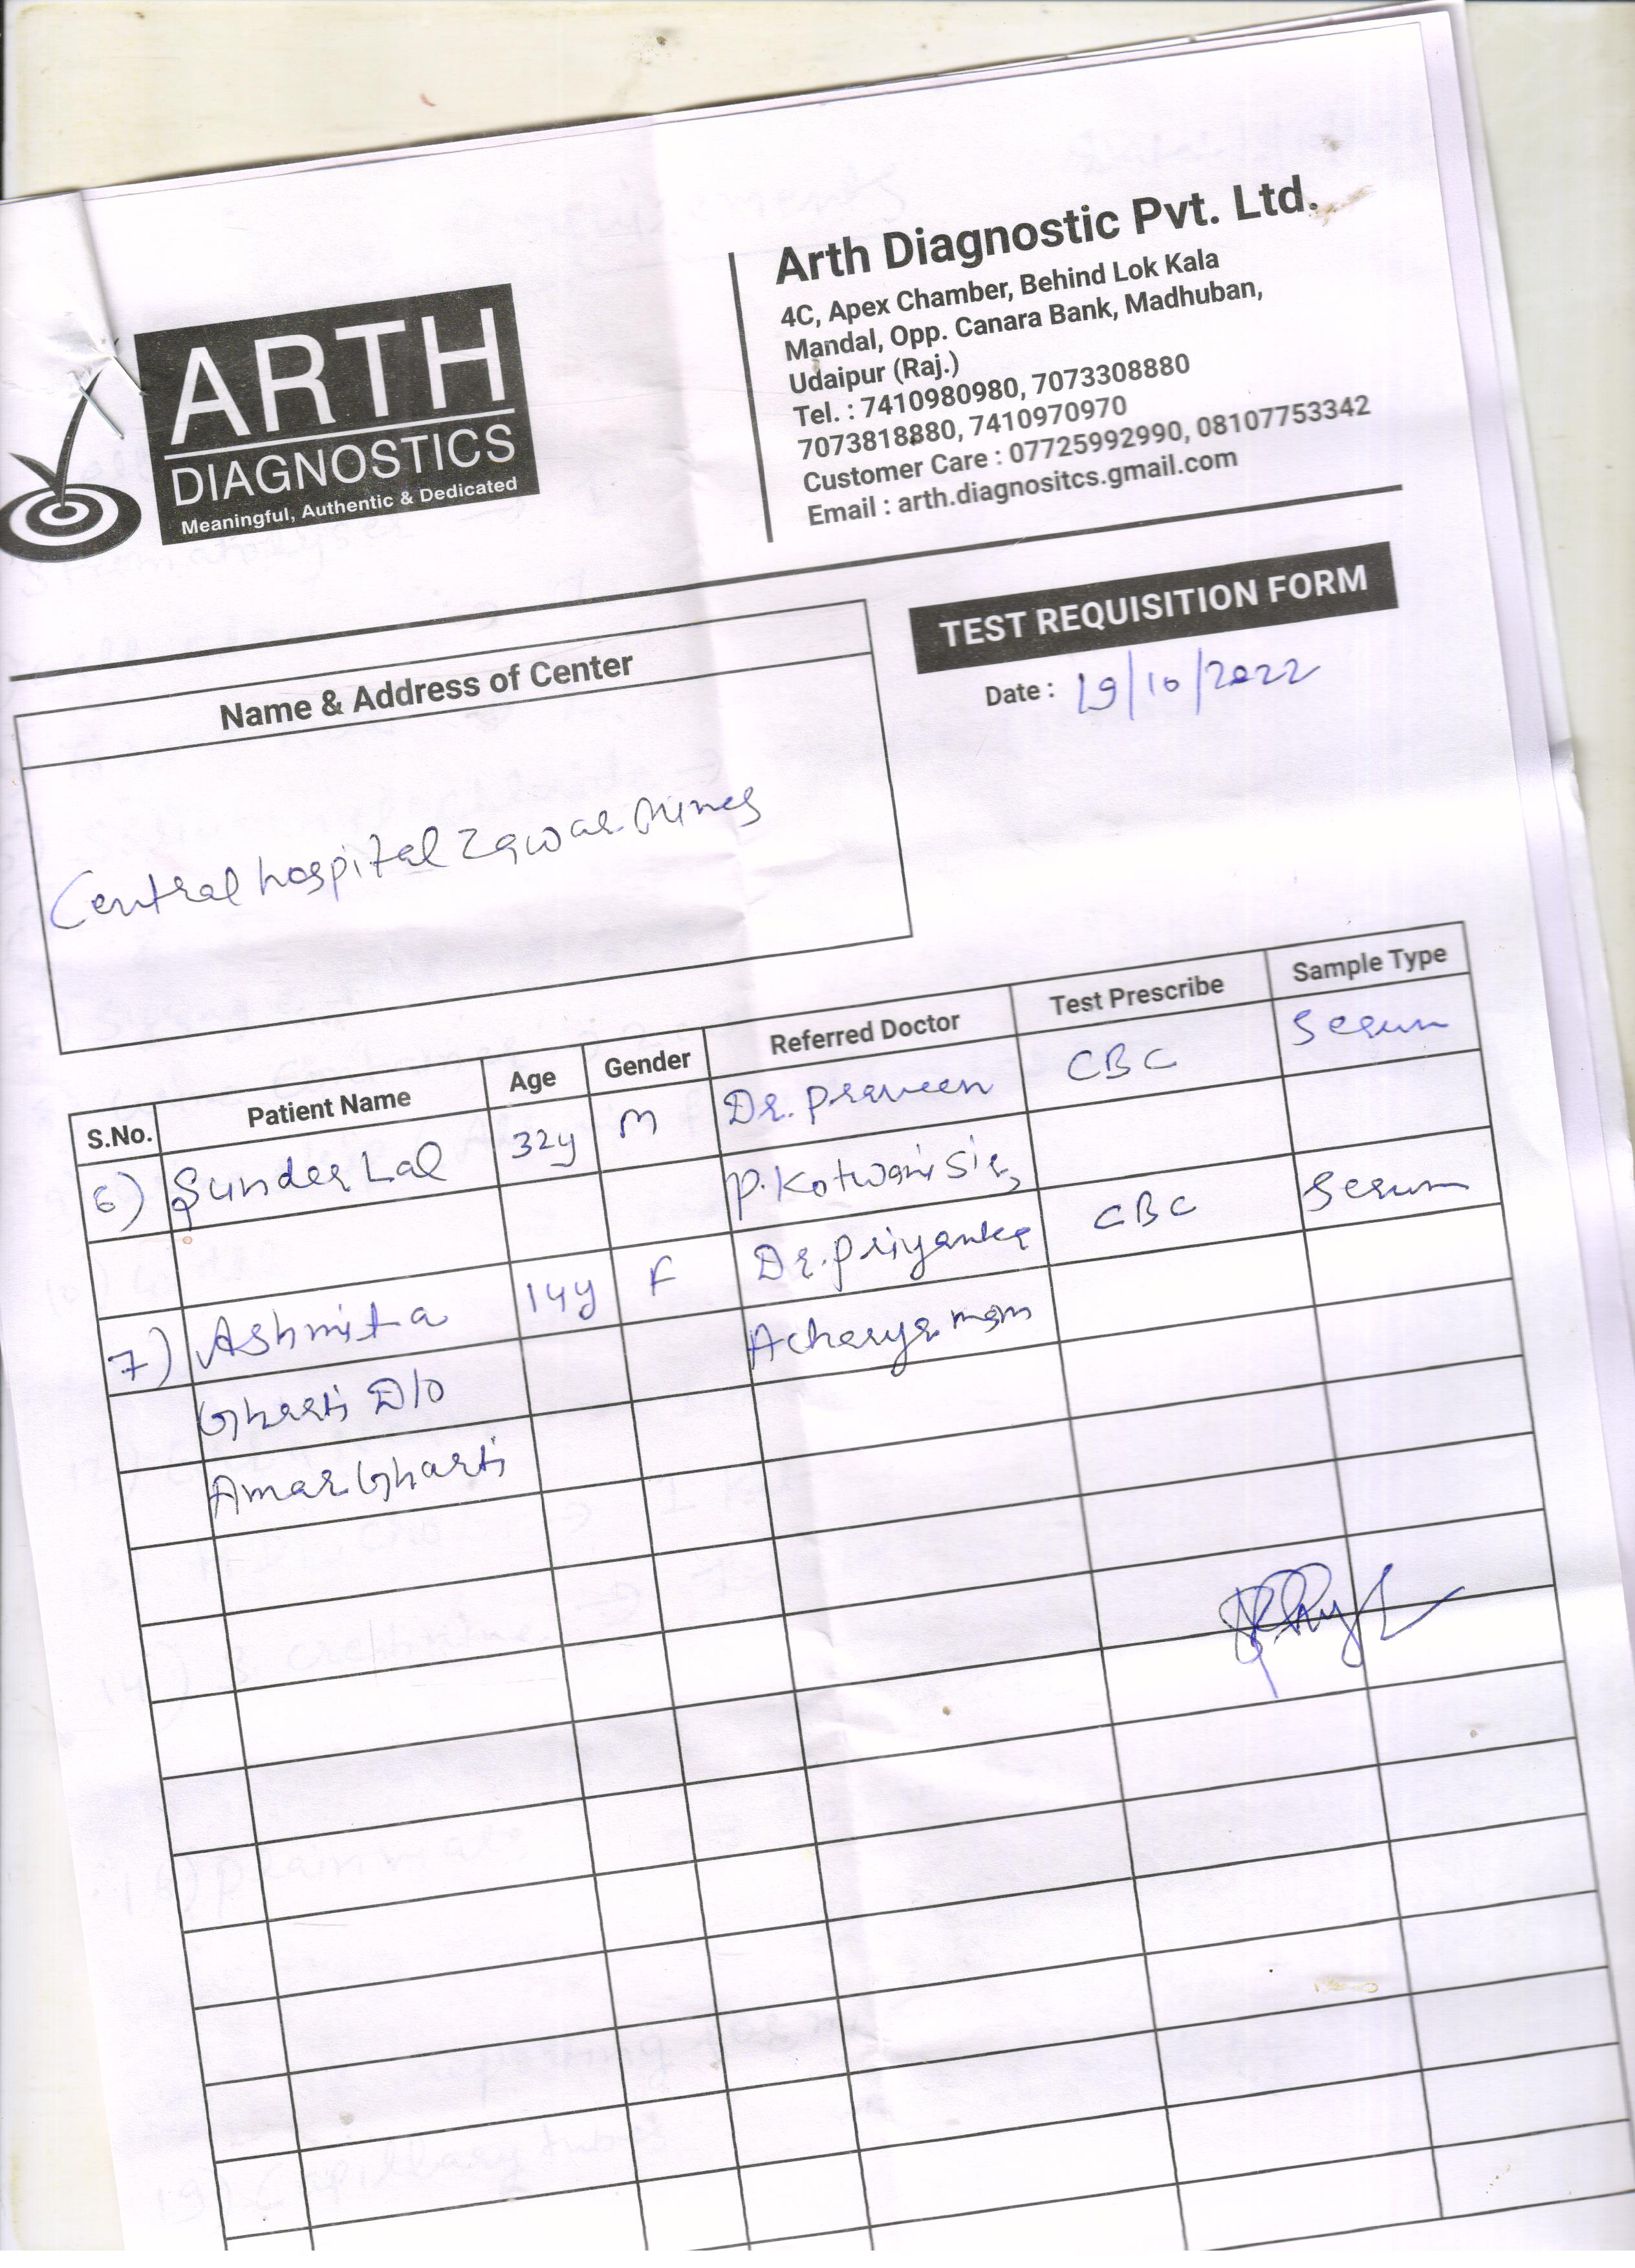 ARTH
DIAGNOSTICS
Meaningful, Authentic & Dedicated
Arth Diagnostic Pvt. Ltd.
4C, Apex Chamber, Behind Lok Kala
Mandal, Opp. Canara Bank, Madhuban,
Udaipur (Raj.)
Tel. : 7410980980, 7073308880
7073818880, 7410970970
Customer Care : 07725992990, 08107753342
Email : arth.diagnositcs.gmail.com
TEST REQUISITION FORM
Date : 19/10/2022
Name & Address of Center
Central hospital Zawar Mines
S.No. Patient Name Age Gender Referred Doctor Test Prescribe Sample Type
6) Sunder Lal 32y M Dr. Praveen CBC Serum
P. Kotwani Sir
7) Ashmita 14y F Dr. Priyanka CBC Serum
Gharti D/o Acharya mam
Amar Gharti